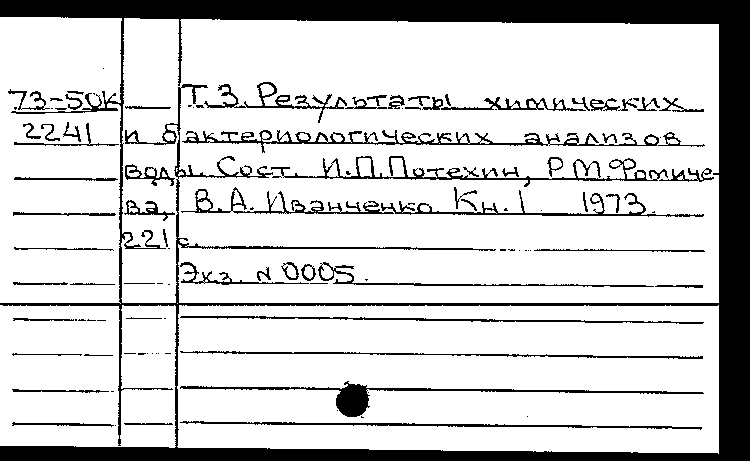 73-50К Т.3. Результаты химических
2241 и бактериологических анализов
воды. Сост. И.П.Потехин, Р.М.Фомиче-
ва, В.А. Иванченко Кн. 1 1973.
221 с.
Экз. N 0005.